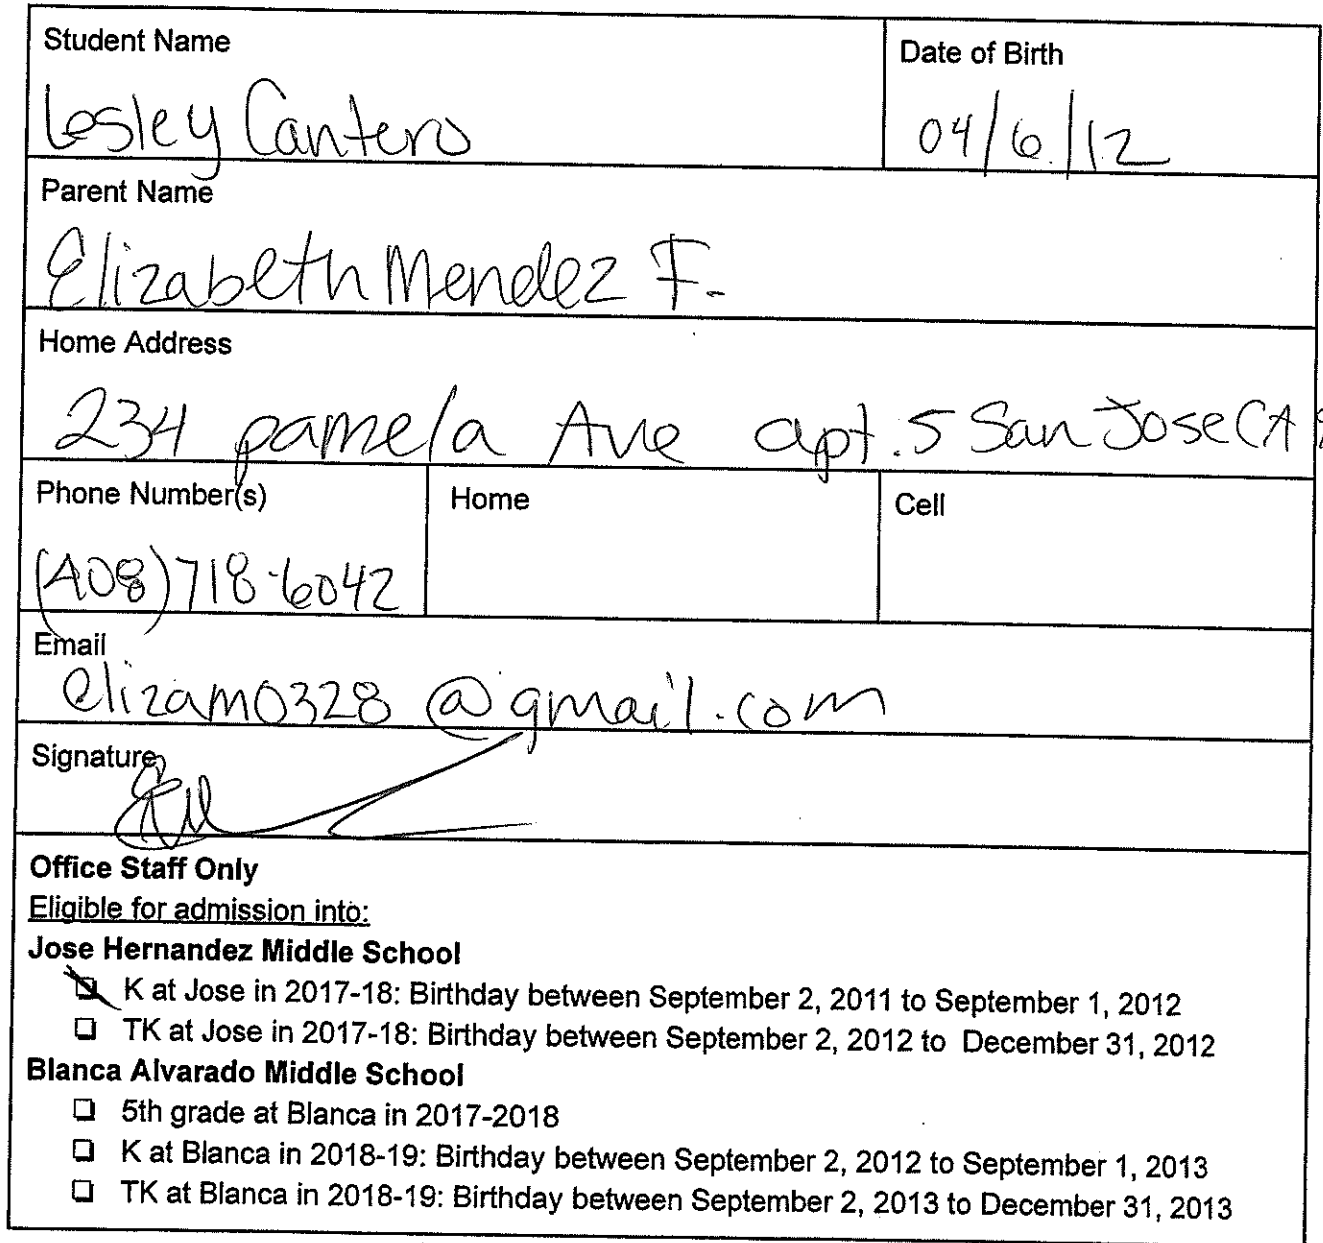 Student Name
Date of Birth
Lesley Cantero
04/6/12
Parent Name
Elizabeth Mendez F.
Home Address
234 pamela Ave apt. 5 San Jose CA
Phone Number(s)
Home
Cell
(408)718-6042
Email
elizam0328@gmail.com
Signature
Office Staff Only
Eligible for admission into:
Jose Hernandez Middle School
K at Jose in 2017-18: Birthday between September 2, 2011 to September 1, 2012
TK at Jose in 2017-18: Birthday between September 2, 2012 to December 31, 2012
Blanca Alvarado Middle School
5th grade at Blanca in 2017-2018
K at Blanca in 2018-19: Birthday between September 2, 2012 to September 1, 2013
TK at Blanca in 2018-19: Birthday between September 2, 2013 to December 31, 2013